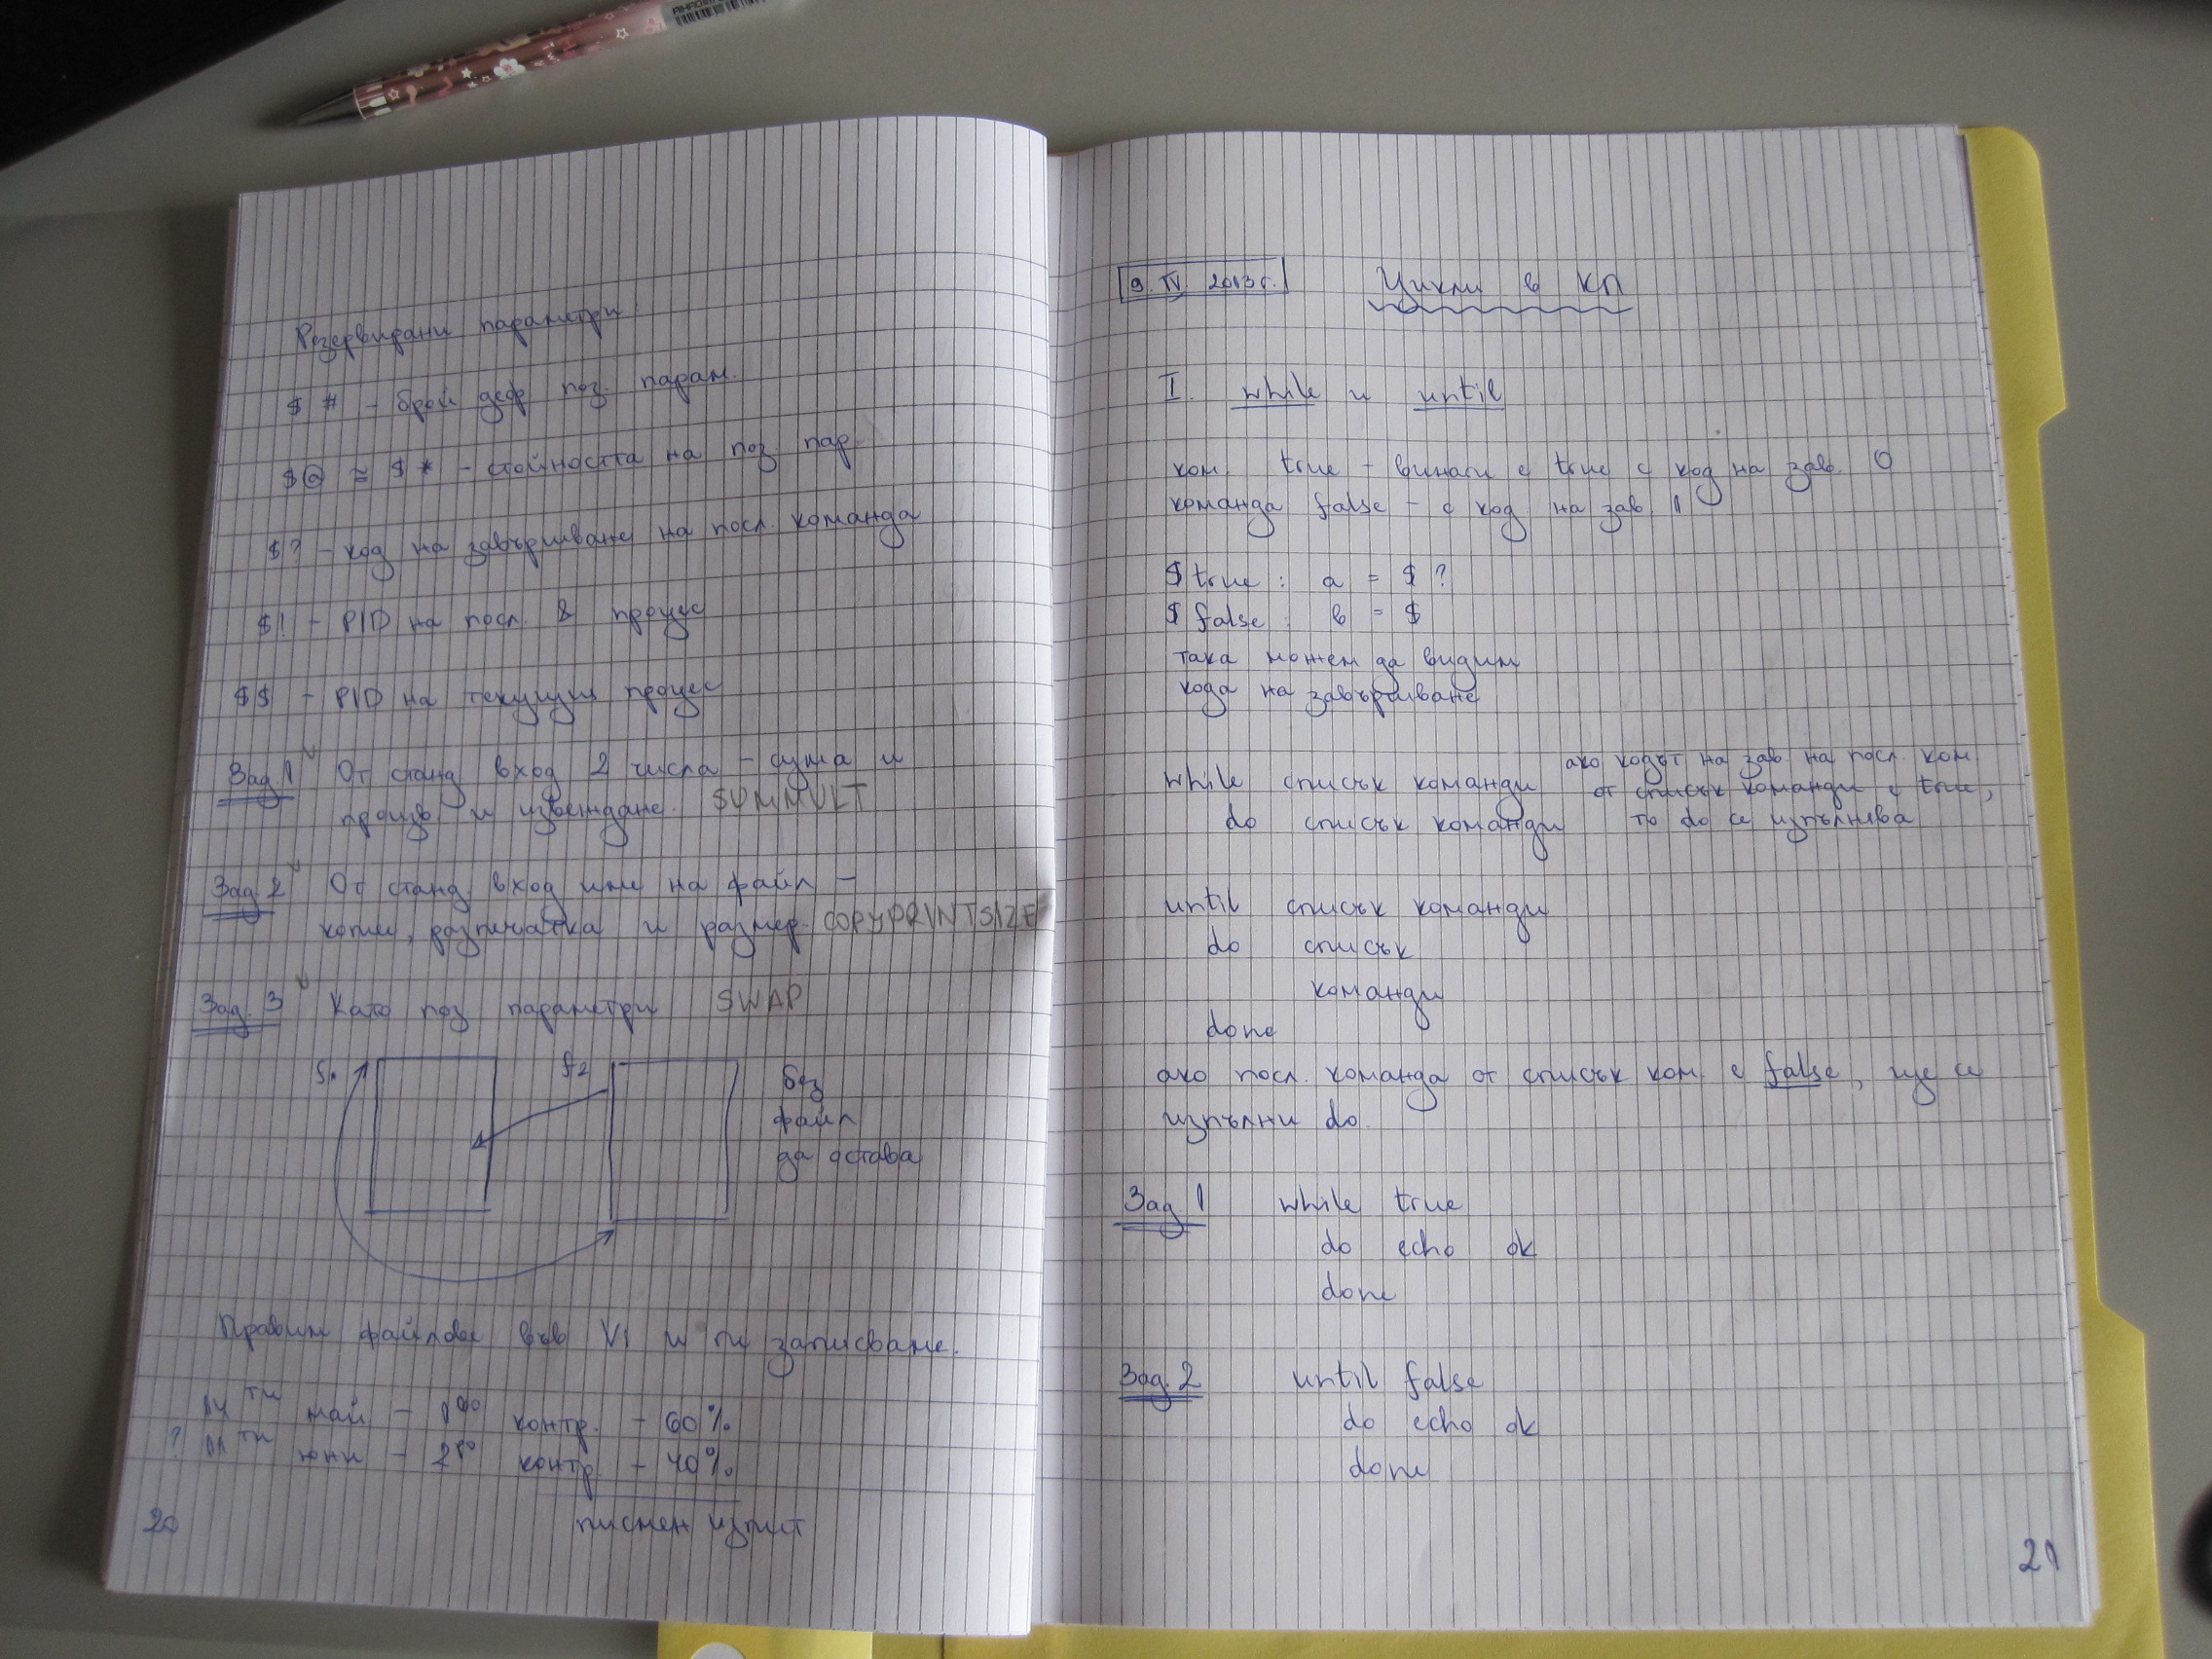 Резервирани параметри:
$ # - брой деф поз. парам.
$@ ≈ $* - стойността на поз. пар.
$? - код на завършване на посл. команда
$! - PID на посл. & процес
$$ - PID на текущия процес
Зад. 1 От станд. вход 2 числа - сума и
произв и извеждане. SUMMULT
Зад 2 От станд. вход име на файл -
копие, разпечатка и размер. COPYPRINTSIZE
Зад. 3 Като поз параметри SWAP
f1 f2
без
файл
да остава
Правим файлове във VI и ги записваме.
14ти май - 1во контр. - 60%
? 11ти юни - 2ро контр. - 40%
писмен изпит
20
9. IV 2013г. Цикли в КП
I. while и until
ком. true - винаги е true с код на зав. 0
команда false - с код на зав. 1
$ true : a = $ ?
$ false : b = $
така можем да видим
кода на завършване
while списък команди ако кодът на зав. на посл. ком.
от списък команди е true,
do списък команди то do се изпълнява
until списък команди
do списък
команди
done
ако посл. команда от списък ком. е false, ще се
изпълни do.
Зад. 1 while true
do echo ok
done
Зад. 2 until false
do echo ok
done
21